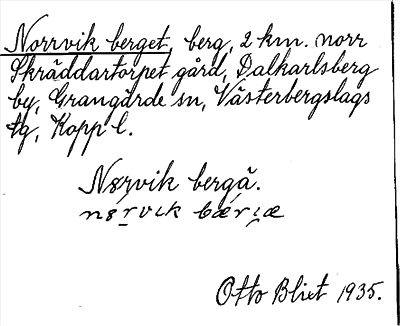 Norrvik berget, berg, 2 km. norr
Skräddartorpet gård, Dalkarlsberg
by, Grangärde sn, Västerbergslags
tg, Kopp l.
bergä.
Otto Blixt 1935.